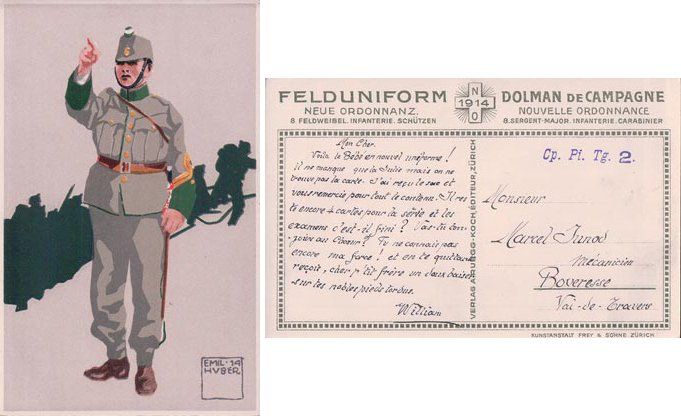 EMIL·14
HVBER
FELDUNIFORM
NEUE ORDONNANZ.
8 FELDWEIBEL. INFANTERIE. SCHÜTZEN
N
1914
O
DOLMAN DE CAMPAGNE
NOUVELLE ORDONNANCE
8. SERGENT-MAJOR. INFANTERIE. CARABINIER
Mon Cher.
Voilà le Bébé en nouvel uniforme!
il ne manque que la Julie mais on ne
trouve pas la carte. J'ai reçu le sac et
vous remercie pour tout le contenu. Il res
te encore 4 cartes pour la série et les
examens c'est-il fini? Vas-tu
au Chœur? Tu ne connais pas
encore ma force! et en te quittant
reçoit, cher p'tit frère un doux baiser
sur les nobles pieds tordus.
William
VERLAG A. RUEGG-KOCH, EDITEUR, ZÜRICH
Cp. Pi. Tg. 2.
Monsieur
Marcel Junod
mécanicien
Boveresse
Val-de-Travers
KUNSTANSTALT FREY & SÖHNE ZÜRICH